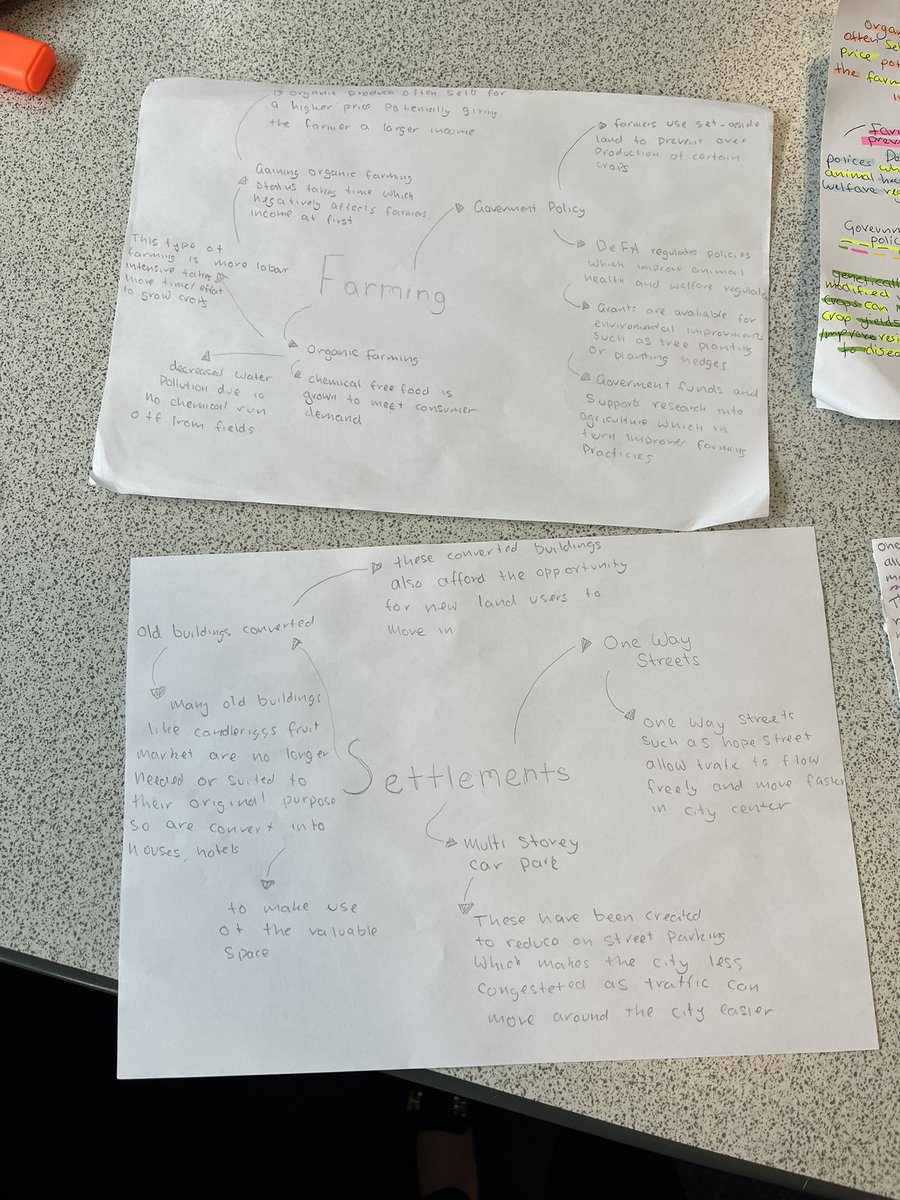 organic produce often sells for
a higher price potenially giving
the farmer a larger income
Gaining organic farming
status takes time which
negatively affects farmers
income at first
This type of
farming is more labor
intensive takes
more time/effort
to grow crops
Farming
Organic Farming
decreased water
Pollution due to
no chemical run
off from fields
chemical free food is
grown to meet consumer
demand
Goverment Policy
farmers use set-aside
land to prevent over
Production of certain
crops
DeFA regulates policies
which improve animal
health and welfare
Grants are avaliable for
enviromental improvments
Such as tree planting
or planting hedges
Goverment funds and
Supports research into
agriculture which in
turn improves farming
Practicies
Organ
often se
Price pot
the farm
Farm
prev
polices wh
animal hea
welfare reg
Goverm
polic
genetically
modified
crops can
crop yields
improve resi
to disea
these converted buildings
also afford the opportunity
for new land users to
move in
Old buildings converted
many old buildings
like candleriggs fruit
market are no longer
needed or suited to
their original purpose
so are convert into
houses, hotels
to make use
of the valuable
space
Settlements
One Way
Streets
one way streets
Such as hope street
allow trafic to flow
freely and move faster
in city center
Multi Storey
car park
These have been created
to reduce on street Parking
Which makes the city less
Congesteted as traffic can
move around the city easier
one
all